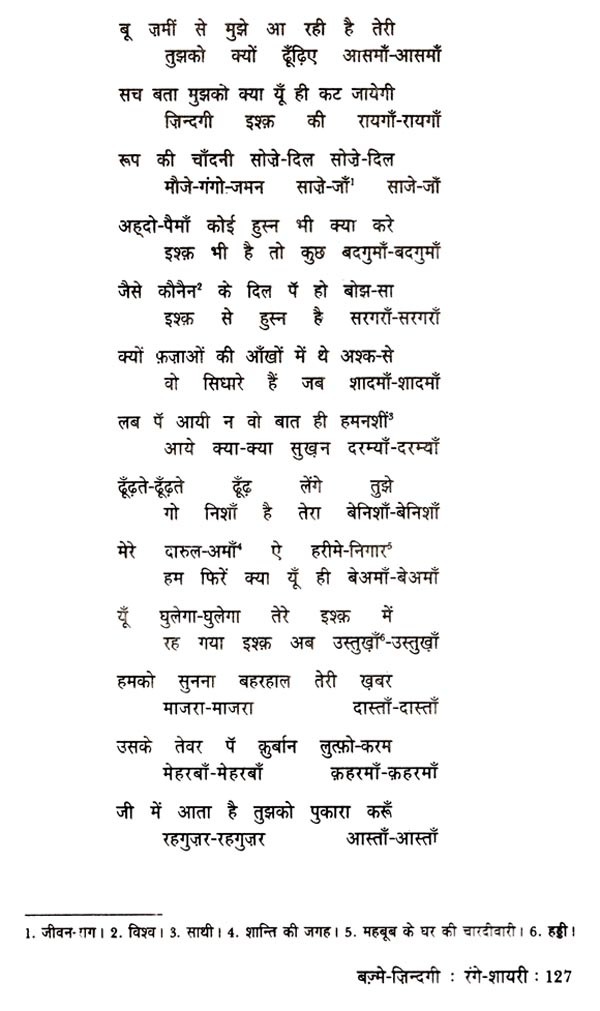 बू ज़मीं से मुझे आ रही है तेरी
तुझको क्यों ढूँढ़िए आसमाँ-आसमाँ
सच बता मुझको क्या यूँ ही कट जायेगी
ज़िन्दगी इश्क़ की रायगाँ-रायगाँ
रूप की चाँदनी सोज़े-दिल सोज़े-दिल
मौजे-गंगो-जमन साज़े-जाँ¹ साजे-जाँ
अह्दो-पैमाँ कोई हुस्न भी क्या करे
इश्क़ भी है तो कुछ बदगुमाँ-बदगुमाँ
जैसे कौनैन² के दिल पॅ हो बोझ-सा
इश्क़ से हुस्न है सरगराँ-सरगराँ
क्यों फ़ज़ाओं की आँखों में थे अश्क-से
वो सिधारे हैं जब शादमाँ-शादमाँ
लब पॅ आयी न वो बात ही हमनशीं³
आये क्या-क्या सुख़न दरम्याँ-दरम्याँ
ढूँढ़ते-ढूँढ़ते ढूँढ़ लेंगे तुझे
गो निशाँ है तेरा बेनिशाँ-बेनिशाँ
मेरे दारुल-अमाँ⁴ ऐ हरीमे-निगार⁵
हम फिरें क्या यूँ ही बेअमाँ-बेअमाँ
यूँ घुलेगा-घुलेगा तेरे इश्क़ में
रह गया इश्क़ अब उस्तुख़ाँ⁶-उस्तुख़ाँ
हमको सुनना बहरहाल तेरी ख़बर
माजरा-माजरा दास्ताँ-दास्ताँ
उसके तेवर पॅ क़ुर्बान लुत्फ़ो-करम
मेहरबाँ-मेहरबाँ क़हरमाँ-क़हरमाँ
जी में आता है तुझको पुकारा करूँ
रहगुज़र-रहगुज़र आस्ताँ-आस्ताँ
1. जीवन-राग। 2. विश्व। 3. साथी। 4. शान्ति की जगह। 5. महबूब के घर की चारदीवारी। 6. हड्डी।
बज़्मे-ज़िन्दगी : रंगे-शायरी : 127